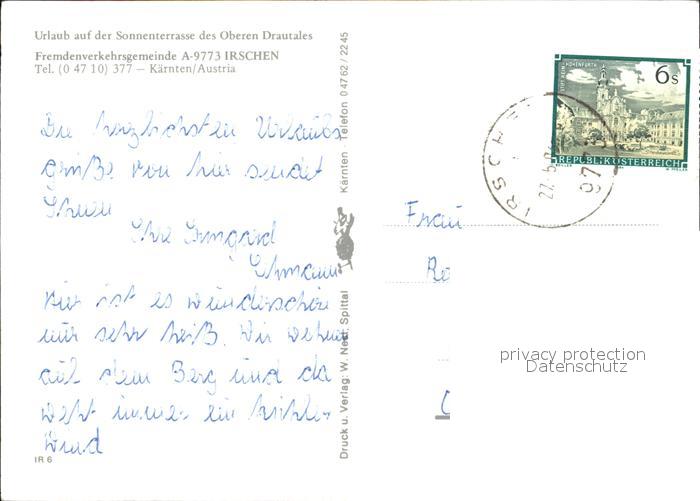 Urlaub auf der Sonnenterrasse des Oberen Drautales
Fremdenverkehrsgemeinde A-9773 IRSCHEN
Tel. (0 47 10) 377 – Kärnten/Austria
Die herzlichsten Urlaubs
grüße von hier sendet
Ihnen
Ihre Irmgard
Ehmann
Hier ist es wunderschön
nur sehr heiß. Wir wohnen
auf dem Berg und da
weht immer ein kühler
Wind
IR 6
Druck u. Verlag: W. Neff, Spittal
Kärnten - Telefon 0 47 62 / 22 45
STIFT REIN-HOHENFURTH
6 S
REPUBLIK ÖSTERREICH
IRSCHEN
9773
Frau
privacy protection
Datenschutz